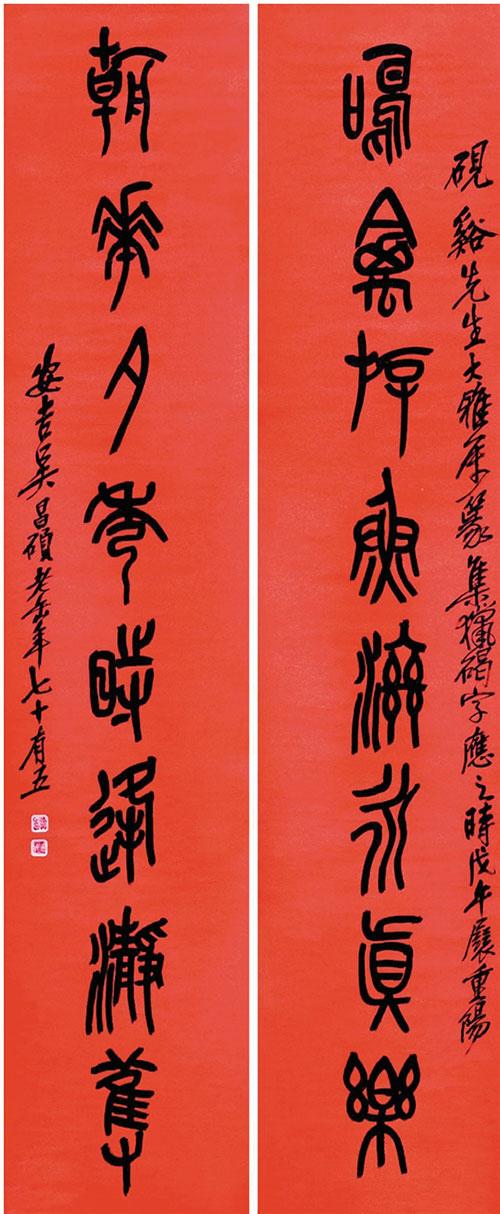 硯谿先生大雅屬篆集獵碣字應之時戊午展重陽
鳴禽斿魚滋永真樂
朝華夕秀時瀞
安吉吳昌碩老缶年七十有五